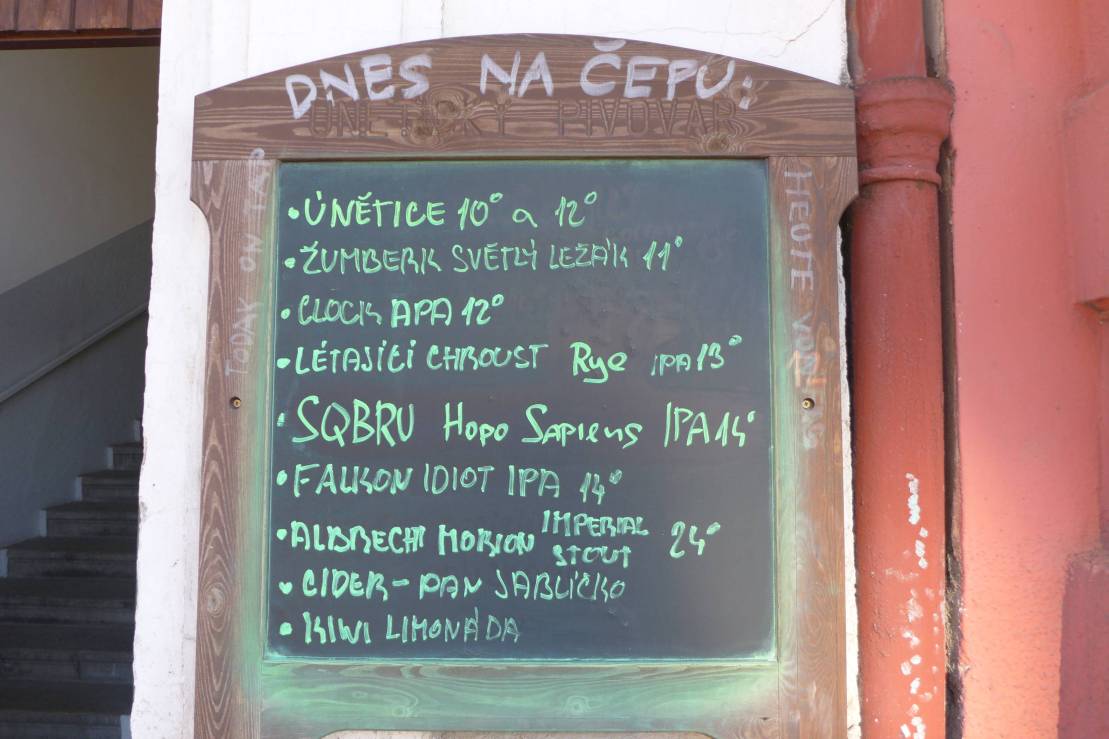 DNES NA ČEPU:
ÚNĚTICKÝ PIVOVAR
TODAY ON TAP
HEUTE VOM FASS
• ÚNĚTICE 10° a 12°
• ŽUMBERK SVĚTLÝ LEŽÁK 11°
• CLOCK APA 12°
• LÉTAJÍCÍ CHROUST Rye IPA 13°
• SQBRU Hopo Sapiens IPA 14°
• FALKON IDIOT IPA 14°
• ALBRECHT MORION IMPERIAL STOUT 24°
• CIDER - PAN JABLÍČKO
• KIWI LIMONÁDA